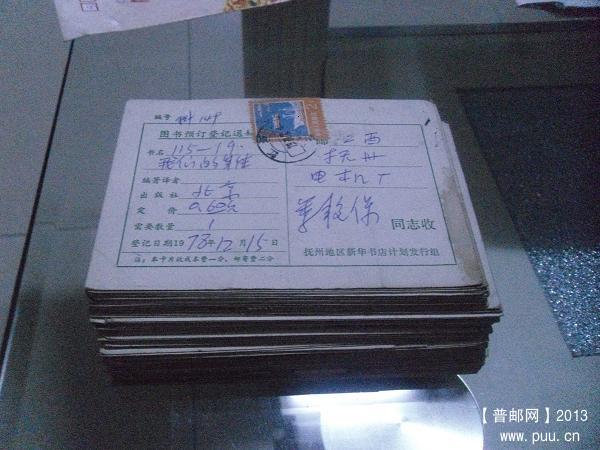 编号
图书预订登记通知
书名 115—19
我们的身体
编著译者
出版社 北京
定价 0.60元
需要数量 1
登记日期1978年12月15日
注:本卡片收成本费一分,邮寄费二分
江西
抚州
电机厂
保 同志收
抚州地区新华书店计划发行组
【普邮网】2013
www.puu.cn